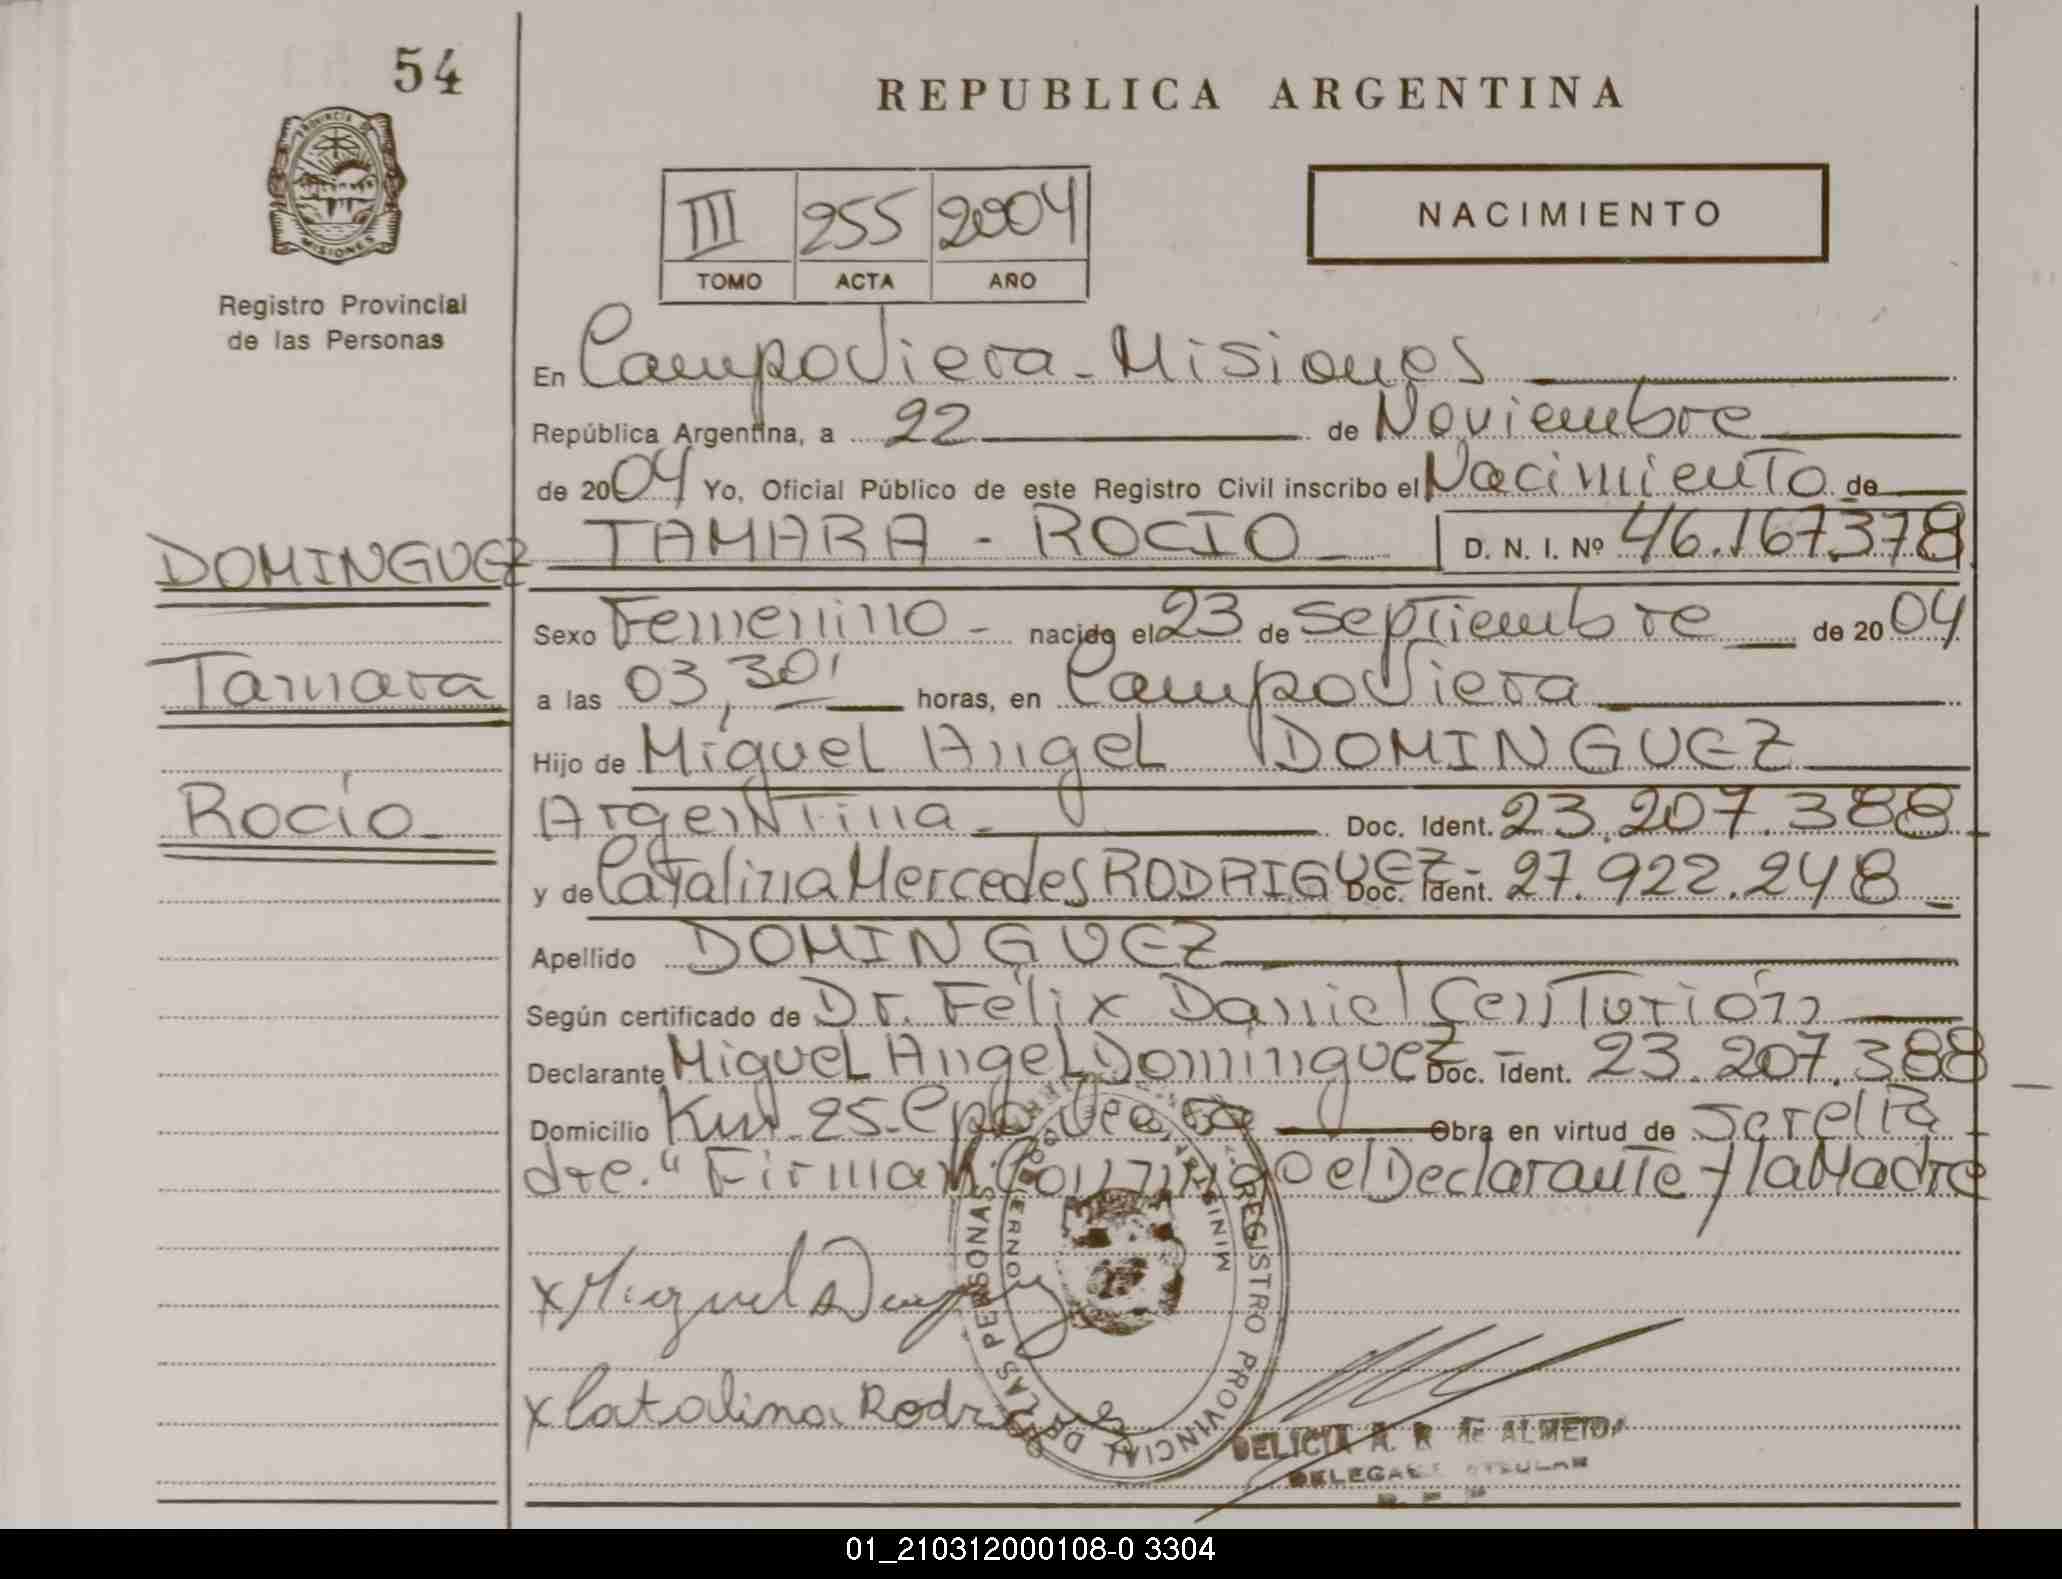 54
PROVINCIA DE
MISIONES
Registro Provincial
de las Personas
REPUBLICA ARGENTINA
III 255 2004
TOMO ACTA AÑO
NACIMIENTO
En CampoViera - Misiones
República Argentina, a 22 de Noviembre
de 2004 Yo, Oficial Público de este Registro Civil inscribo el Nacimiento de
DOMINGUEZ TAMARA - ROCIO - D. N. I. Nº 46.167.378
Sexo Femenino - nacido el 23 de septiembre de 2004
Tamara
a las 03,30' horas, en CampoViera
Hijo de Miguel Angel DOMINGUEZ
Rocío -
Argentina - Doc. Ident. 23.207.388 -
y de Catalina Mercedes RODRIGUEZ - Doc. Ident. 27.922.248 -
Apellido DOMINGUEZ
Según certificado de Dr. Félix Daniel Centurión
Declarante Miguel Angel Domínguez - Doc. Ident. 23.207.388 -
Domicilio Km. 25 - Obra en virtud de ser el Pa-
dre. " Firman el Declarante y la Madre
x Miguel A
x Catalina Rodriguez
REGISTRO PROVINCIAL DE LAS PERSONAS
DELICIA A. R. de ALMEIDA
DELEGADA TITULAR
01_210312000108-0 3304